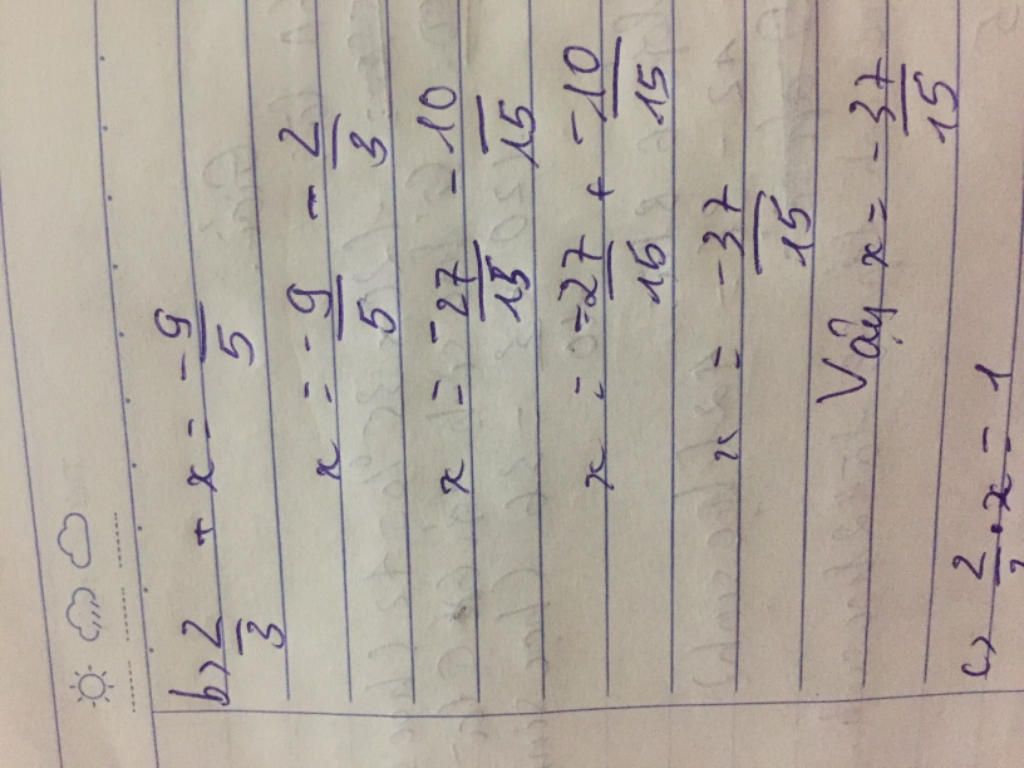 b) 2/3 + x = -9/5
x = -9/5 - 2/3
x = -27/15 - 10/15
x = -27/15 + -10/15
x = -37/15
Vậy x = -37/15
c) 2/ · x = 1